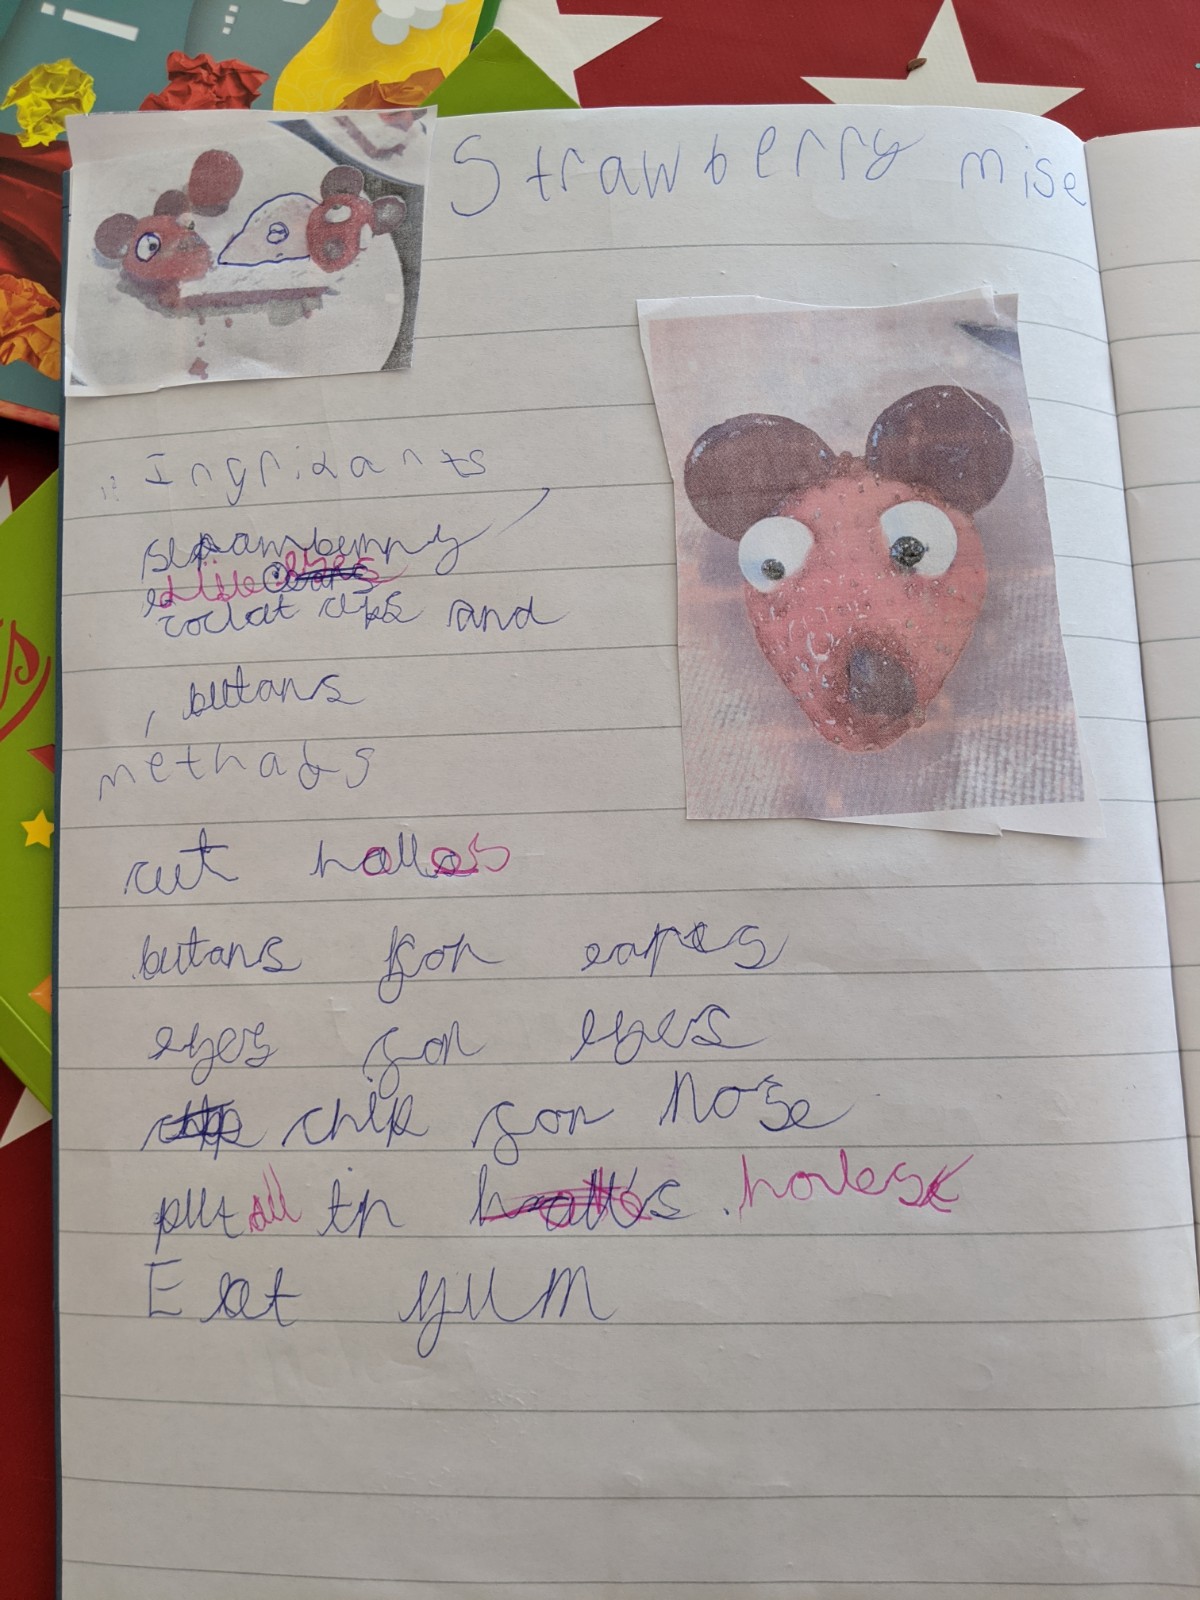 Strawberry mise
Ingridants
strawberry
eyes
coclat cips and
, butans
methads
cut holles
butans for eares
eyes for eyes
chip for Nose
put all in holes
Eat yum